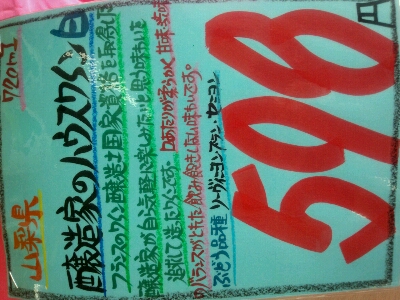 720ml
山梨県
醸造家のハウスワイン 白
フランスのワイン醸造士国家資格を取得した
醸造家が自ら気軽に楽しみたいと思う味わいを
追求して造ったワインです。口あたりが柔らかく 甘味・酸味
のバランスがとれた飲み飽きしない味わいです。
ぶどう品種 ソーヴィニヨンブラン・セミヨン
598円